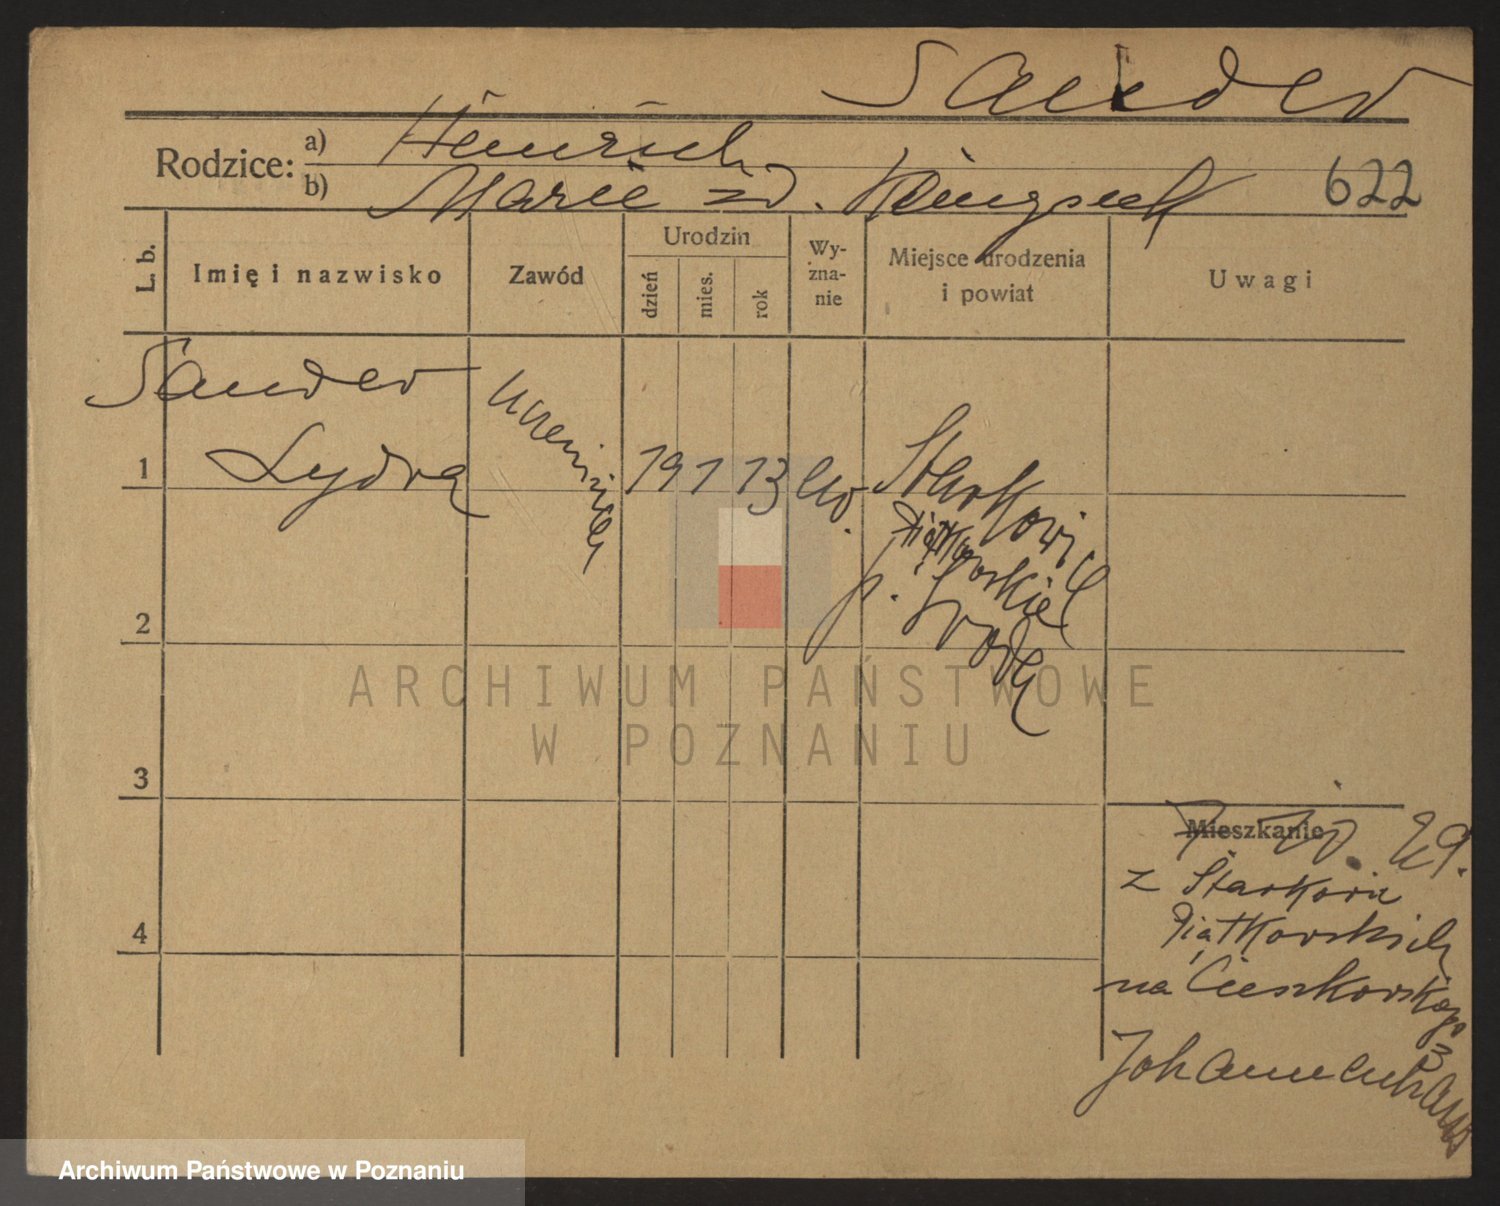 Sander
Rodzice: a) Heinrich
b) Marie zd. Königseck
622
L. b.
Imię i nazwisko
Zawód
Urodzin
dzień
mies.
rok
Wy-
zna-
nie
Miejsce urodzenia
i powiat
Uwagi
Sander
1 Lydia
uczenica
19 1 13 ew.
Starkowiec
Piątkowskie
p. Środa
2
3
4
Mieszkanie
7. 10. 29.
z Starkowca
Piątkowskich
na Cieszkowskiego
3
Johannenhaus
ARCHIWUM PAŃSTWOWE
W POZNANIU
Archiwum Państwowe w Poznaniu